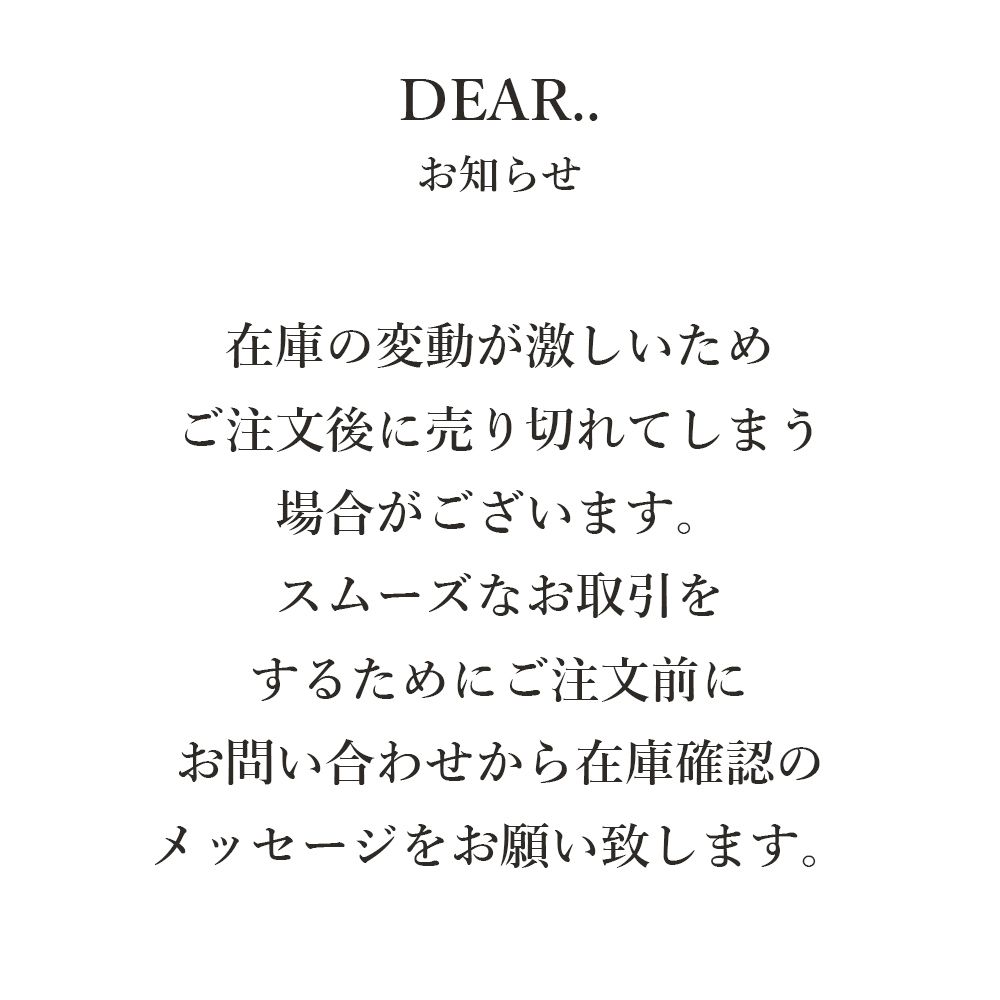 DEAR..
お知らせ
在庫の変動が激しいため
ご注文後に売り切れてしまう
場合がございます。
スムーズなお取引を
するためにご注文前に
お問い合わせから在庫確認の
メッセージをお願い致します。